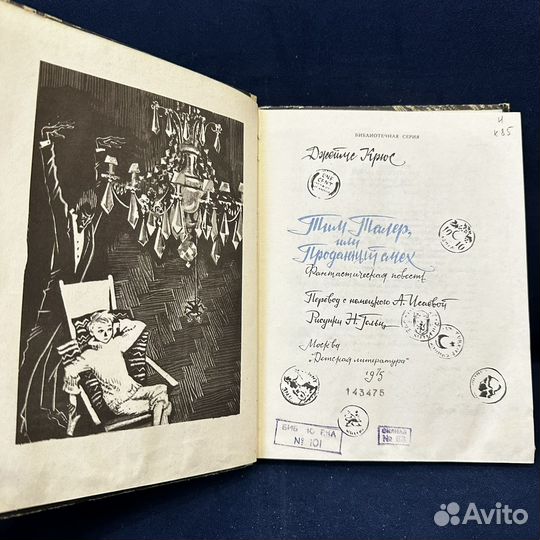 БИБЛИОТЕЧНАЯ СЕРИЯ
И
К85
Джеймс Крюс
ONE CENT
Тим Талер,
или
Проданный смех
Фантастическая повесть
10
10
Перевод с немецкого А. Исаевой
Рисунки Н. Гольц
Москва
"Детская литература"
1975
143475
БИБЛ ТЕКА
№ 101
ФИЛИАЛ
№ 63
Avito